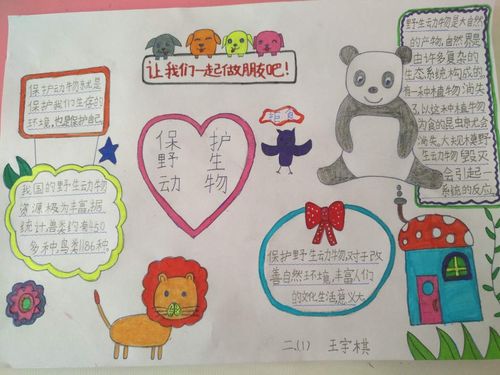 让我们一起做朋友吧！
保护动物就是
保护我们生存的
环境，也是保护自己。
保 护
野 生
动 物
我国的野生动物
资源极为丰富，据
统计，兽类约有450
多种，鸟类1186种。
保护野生动物，对于改
善自然环境，丰富人们
的文化生活意义大。
野生动物是大自然
的产物，自然界是
由许多复杂的
生态系统构成的。
有一种植物消失
了，以这种植物
为食的昆虫就会
消失。
野
生动物毁灭
会引起一
系统的反应。
二、(1) 王宇棋